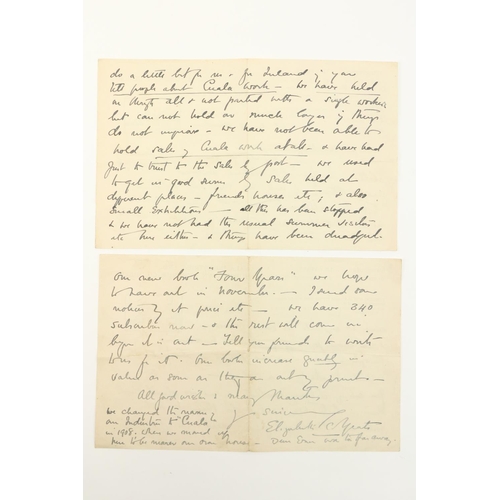 do a little bit for us & for Ireland if you
tell people about Cuala work – We have held
on through all & not parted with a single worker
but can not hold on much longer if things
do not improve – we have not been able to
hold sales of Cuala work – & have had
just to trust to the sales by post – we used
to get in good sums by sales held at
different places – friends houses etc; & also
small Exhibitions – all this has been stopped
& we have not had the usual summer visitors
etc here either – & things have been dreadful.
Our new book "Four Years" we hope
to have out in November. – I send some
notices of it price etc – we have 240
subscribers now – & the rest will come in
before it is out – Tell your friends to write
to us for it. Our books increase quickly in
value as soon as they are out of print –
All good wishes & many thanks
we changed the name of
our Industries to Cuala
in 1908. when we moved
here to be nearer our own house –
yrs sincerely
Elizabeth C Yeats
Dun Emer was too far away.